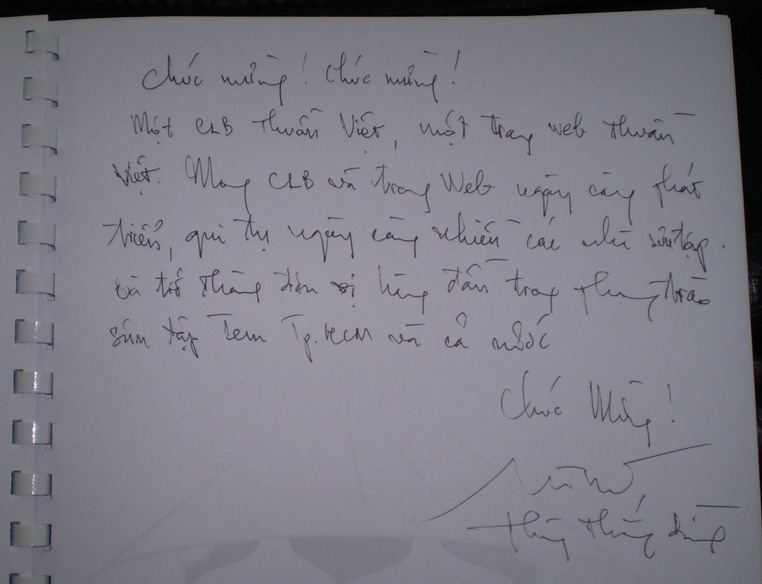 Chúc mừng! Chúc mừng!
Một CLB thuần Việt, một trang web thuần
Việt. Mong CLB và trang Web ngày càng phát
triển, qui tụ ngày càng nhiều các nhà sưu tập.
và trở thành đơn vị hàng đầu trong phong trào
sưu tập Tem Tp.HCM và cả nước
Chúc Mừng!